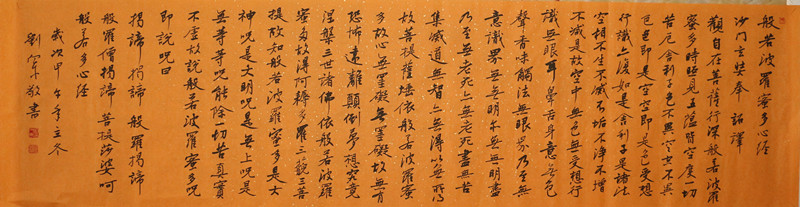 般若波羅蜜多心經
沙門玄奘奉詔譯
觀自在菩薩行深般若波羅
蜜多時照見五蘊皆空度一切
苦厄舍利子色不異空空不異
色色即是空空即是色受想
行識亦復如是舍利子是諸法
空相不生不滅不垢不淨不增
不減是故空中無色無受想行
識無眼耳鼻舌身意無色
聲香味觸法無眼界乃至無
意識界無無明亦無無明盡
乃至無老死亦無老死盡無苦
集滅道無智亦無得以無所得
故菩提薩埵依般若波羅蜜
多故心無罣礙無罣礙故無有
恐怖遠離顛倒夢想究竟
涅槃三世諸佛依般若波羅
蜜多故得阿耨多羅三藐三菩
提故知般若波羅蜜多是大
神咒是大明咒是無上咒是
無等等咒能除一切苦真實
不虛故說般若波羅蜜多咒
即說咒曰
揭諦 揭諦 般羅揭諦
般羅僧揭諦 菩提莎婆呵
般若多心經
歲次甲午年立冬
劉 敬書